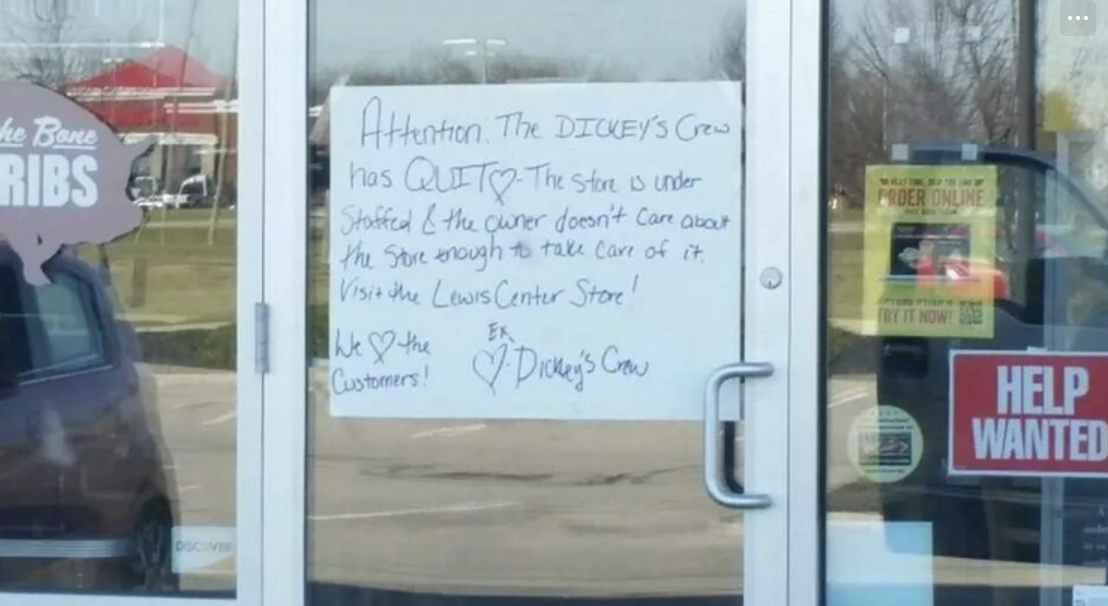 he Bone
RIBS
Attention. The DICKEY'S Crew
has QUIT♡-The store is under
Staffed & the owner doesn't care about
the store enough to take care of it.
Visit the Lewis Center Store!
We ♡ the
Customers!
Ex.
♡-Dickey's Crew
ORDER ONLINE
TRY IT NOW!
HELP
WANTED
DISCOVER